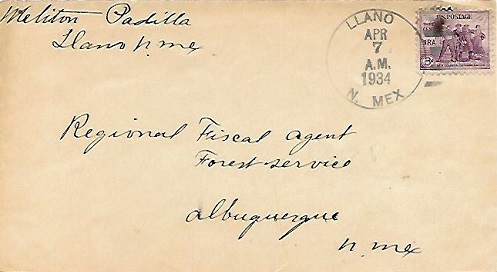 Meliton Padilla
Llano N. Mex
LLANO
APR
7
A.M.
1934
N. MEX
U.S. POSTAGE
NRA
3¢
Regional Fiscal agent
Forest service
albuquerque
n. mex